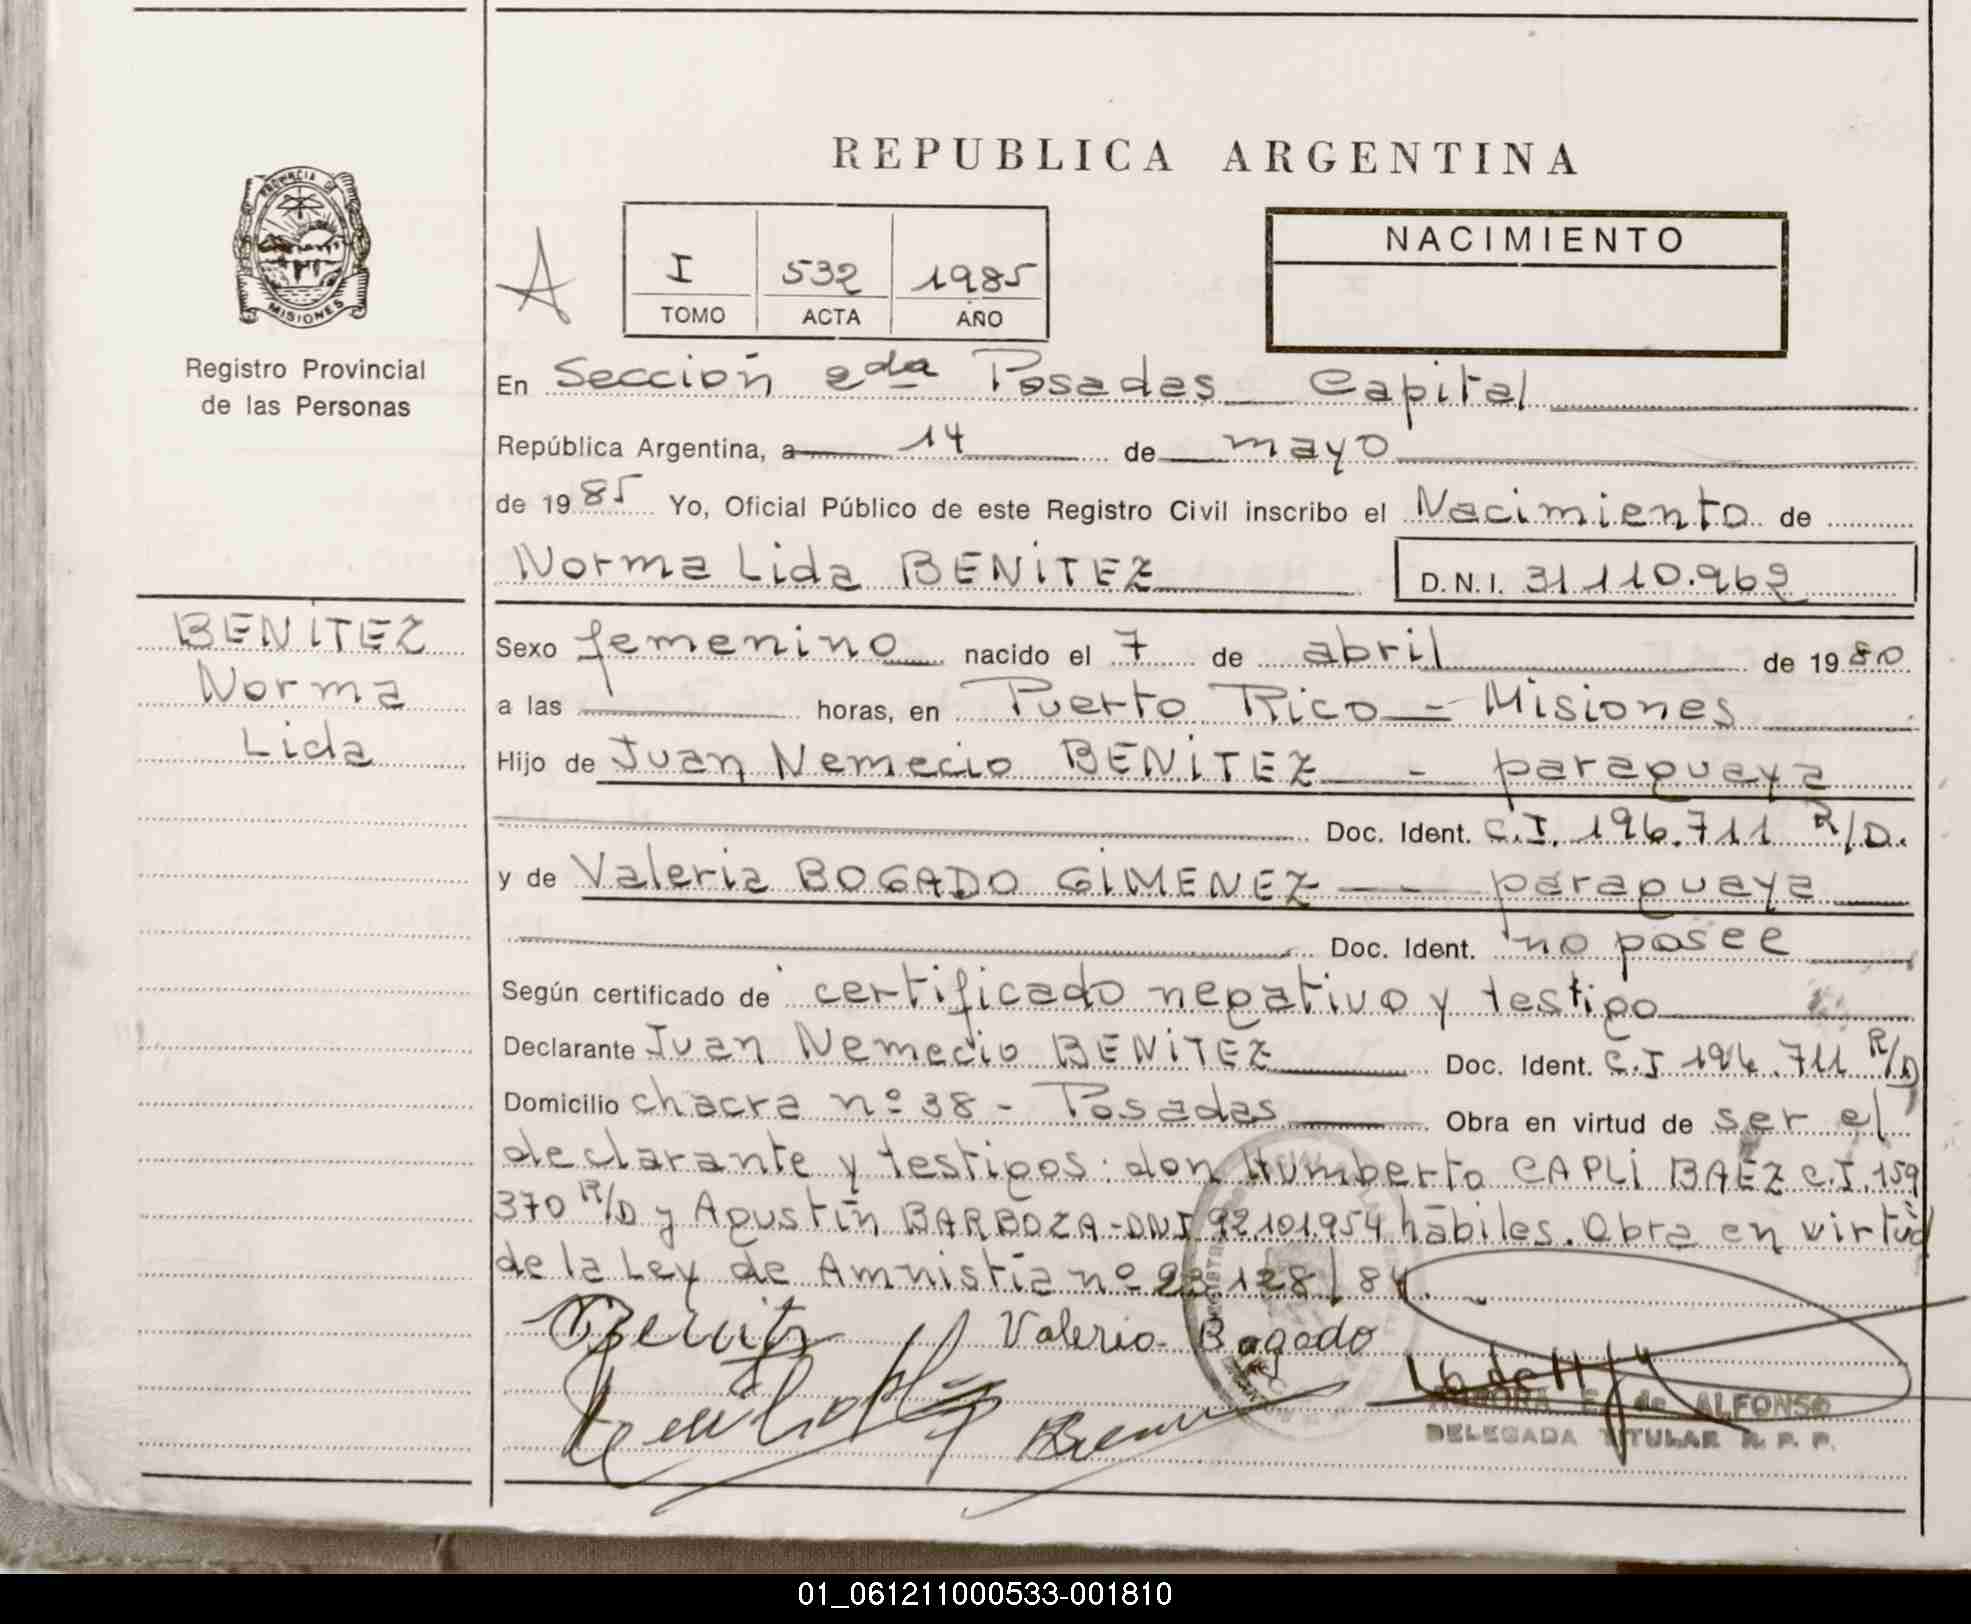 REPUBLICA ARGENTINA
PROVINCIA DE
MISIONES
Registro Provincial
de las Personas
A
I 532 1985
TOMO ACTA AÑO
NACIMIENTO
En Sección 2da Posadas Capital
República Argentina, a 14 de mayo
de 1985 Yo, Oficial Público de este Registro Civil inscribo el Nacimiento de
Norma Lida BENITEZ D.N.I. 31.110.962
BENITEZ
Norma
Lida
Sexo femenino nacido el 7 de abril de 1980
a las horas, en Puerto Rico - Misiones
Hijo de Juan Nemecio BENITEZ - paraguaya
Doc. Ident. C.I. 196.711 R/D.
y de Valeria BOGADO GIMENEZ - paraguaya
Doc. Ident. no posee
Según certificado de certificado negativo y testigo
Declarante Juan Nemecio BENITEZ Doc. Ident. C.I 196.711 R/D
Domicilio chacra nº 38 - Posadas Obra en virtud de ser el
declarante y testigos: don Humberto CAPLI BAEZ C.I. 159
370 R/D y Agustín BARBOZA-DNI 92.101.954 hábiles. Obra en virtud
de la Ley de Amnistía nº 23.128/84.
Valeria Bogado
E. de ALFONSO
DELEGADA TITULAR R. P. P.
01_061211000533-001810